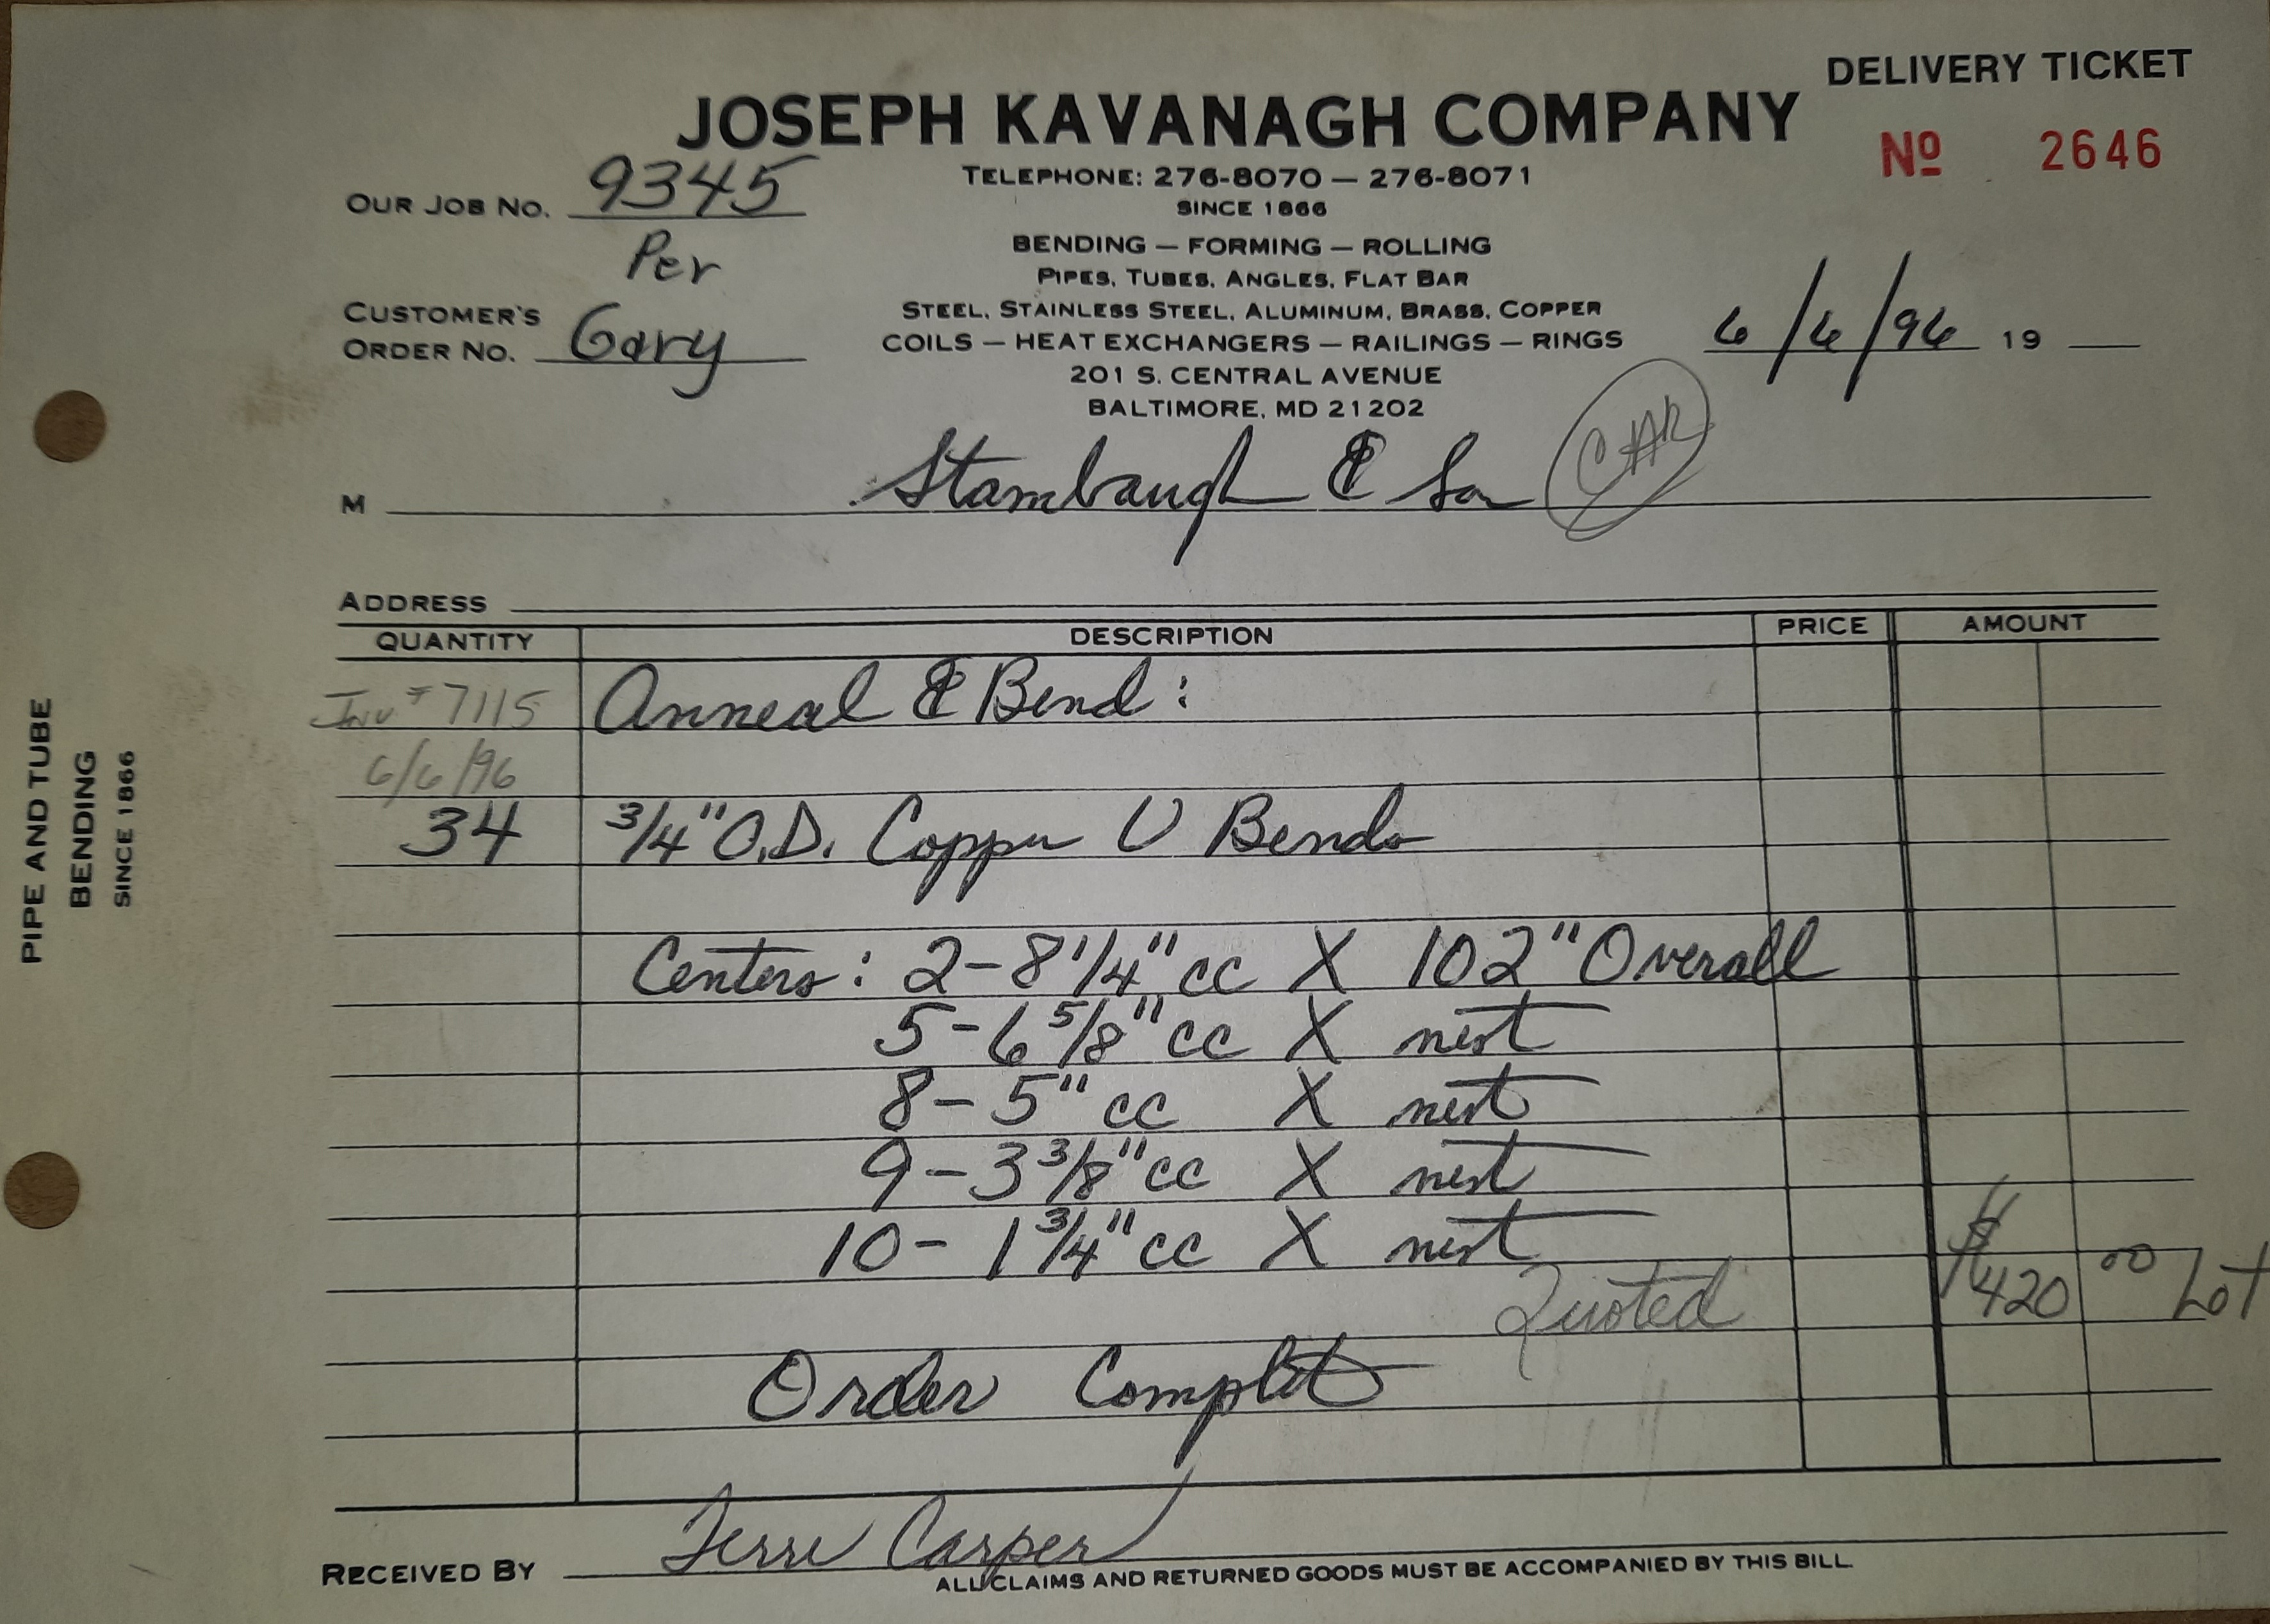 DELIVERY TICKET
JOSEPH KAVANAGH COMPANY
No 2646
TELEPHONE: 276-8070 — 276-8071
SINCE 1866
OUR JOB NO. 9345
Per
BENDING — FORMING — ROLLING
PIPES, TUBES, ANGLES, FLAT BAR
STEEL, STAINLESS STEEL, ALUMINUM, BRASS, COPPER
CUSTOMER'S
ORDER NO. Gary
COILS — HEAT EXCHANGERS — RAILINGS — RINGS
6/6/96 19
201 S. CENTRAL AVENUE
BALTIMORE, MD 21202
M Stambaugh & Son
ADDRESS
QUANTITY DESCRIPTION PRICE AMOUNT
Inv # 7115 Anneal & Bend:
6/6/96
34 3/4" O.D. Copper U Bends
Centers: 2-8 1/4" cc X 102" Overall
5-6 5/8" cc X nest
8-5" cc X nest
9-3 3/8" cc X nest
10-1 3/4" cc X nest
Quoted $420 00 Lot
Order Complete
RECEIVED BY Terri Carper
ALL CLAIMS AND RETURNED GOODS MUST BE ACCOMPANIED BY THIS BILL
PIPE AND TUBE
BENDING
SINCE 1866